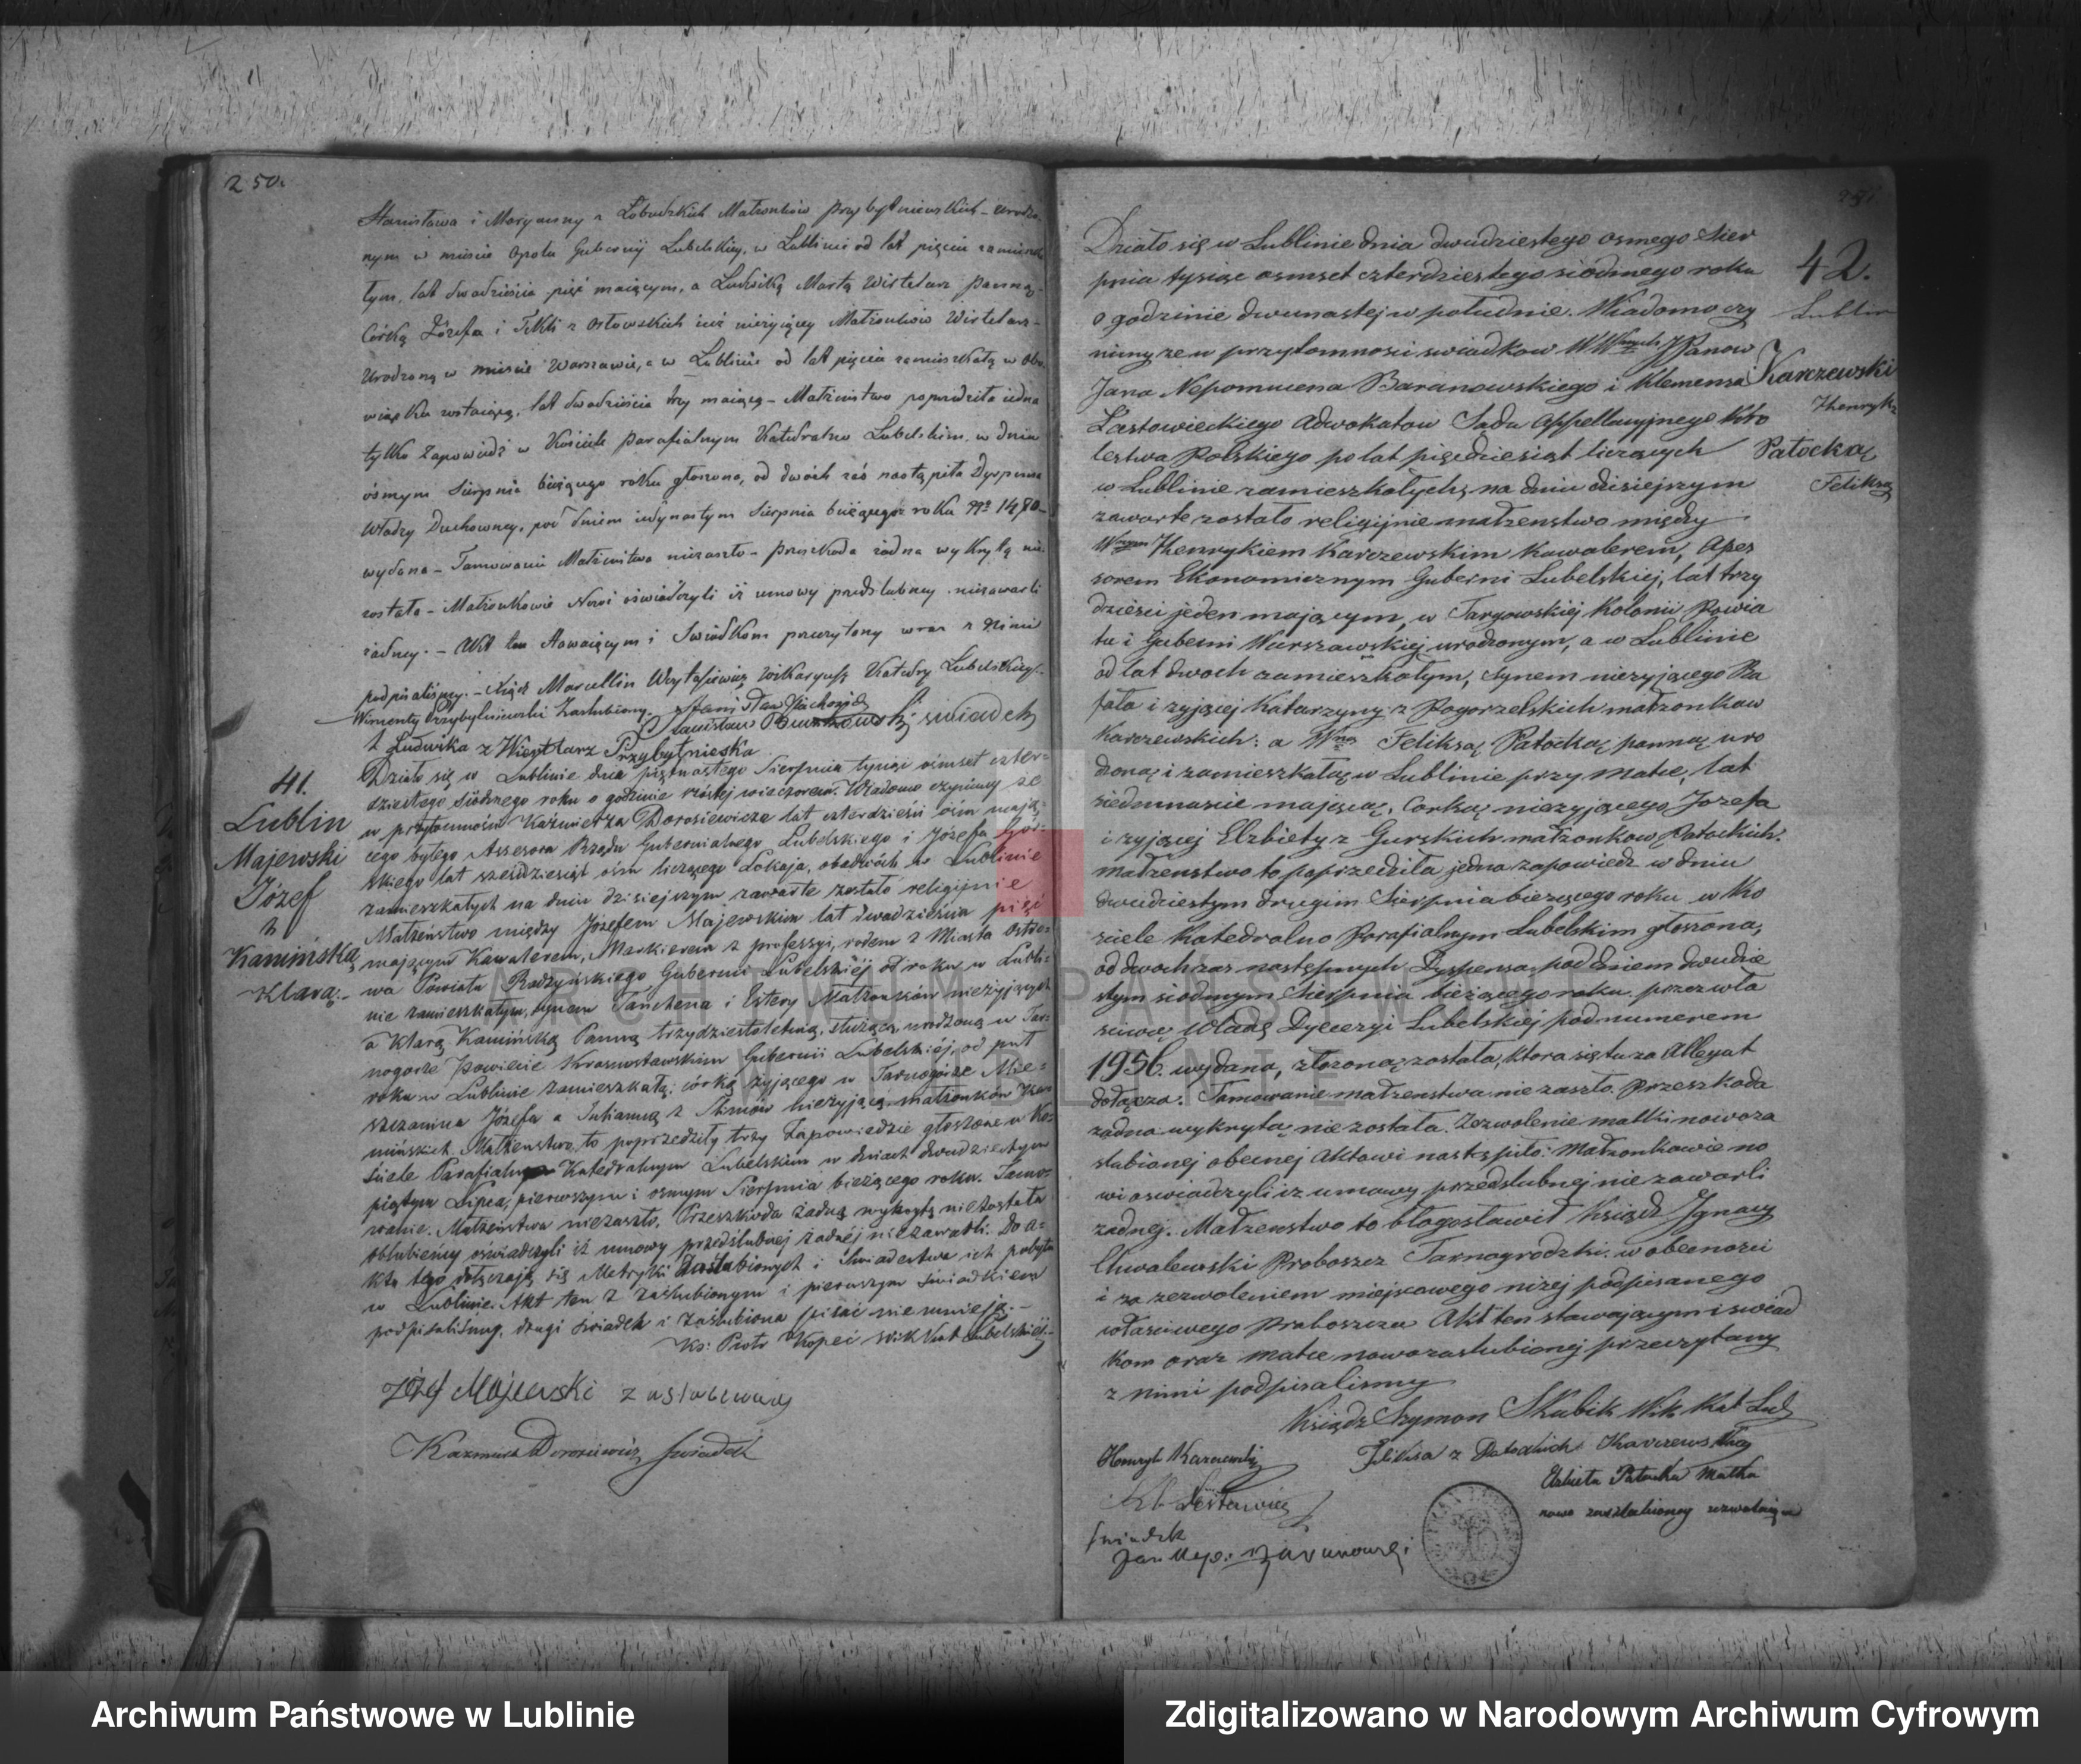 250.
Stanisława i Maryanny z Łobudzkich Małżonków Przybylniewskich – urodzo-
nym w mieście Opolu Gubernij Lubelskiey, w Lublinie od lat pięciu zamieszka
łym, lat dwadzieścia pięć maiącym, a Ludwiką Martą Wirtelarz Panną,
Córką Józefa i Tekli z Osłowskich już nieżyiącey Małżonków Wirtelarz –
Urodzoną w mieście Warszawie, a w Lublinie od lat pięciu zamieszkałą w obo-
wiązku zostaiącą, lat dwadzieścia trzy maiącą – Małżeństwo poprzedziła iedna
tylko Zapowiedź w Kościele Parafialnym Katedralno Lubelskim, w dniu
ósmym Sierpnia bieżącego roku głoszona, od dwóch zaś nastąpiła Dyspensa
Władzy Duchowney, pod dniem iedynastym Sierpnia bieżącego roku No 1480 –
wydana – Tamowanie Małżeństwa niezaszło – przeszkoda żadna wykrytą nie
została – Małżonkowie Nowi oświadczyli iż umowy przedślubney niezawarli
żadney. – Akt ten Stawaiącym i Świadkom przeczytany wraz z Nimi
podpisaliśmy. – Xiądz Marcellin Wikaryusz Katedry Lubelskiey.
Wincenty Przybylniewski Zaślubiony.
Stanisław świadek
Ludwika z Wiertlarz Przybylnieska
41.
Lublin
Majewski
Józef
z
Kamińską
Klarą.
Działo się w Lublinie dnia piętnastego Sierpnia tysiąc ośmset czter-
dziestego siódmego roku o godzinie szóstej wieczorem. Wiadomo czyniemy że
w przytomności Kaźmierza Dorosiewicza lat czterdzieści ośm mają-
cego byłego Assesora Rządu Gubernialnego Lubelskiego i Józefa Gór-
skiego lat sześćdziesiąt ośm liczącego Lokaja, obudwóch w Lublinie
zamieszkałych na dniu dzisiejszym zawarte zostało religijnie
Małżeństwo między Józefem Majewskim lat dwadzieścia pięć
mającym Kawalerem, Markierem z professyi, rodem z Miasta Ostro-
wa Powiatu Radzyńskiego Gubernii Lubelskiéj od roku w Lubli-
nie zamieszkałym, synem Tanchena i Estery Małżonków nieżyjących
a Klarą Kamińską Panną trzydziestoletnią, służącą, urodzoną w Tar-
nogórze Powiecie Krasnostawskim Gubernii Lubelskiéj, od puł
roku w Lublinie zamieszkałą; córką żyjącego w Tarnogórze Mie-
szczanina Józefa a Julianną z nieżyjącą małżonków Ka-
mińskich. Małżeństwo to poprzedziły trzy Zapowiedzie głoszone w Ko-
ściele Parafialnym Katedralnym Lubelskim w dniach dwudziestym
piątym Lipca, pierwszym i ósmym Sierpnia bieżącego roku. Tamo-
wanie Małżeństwa niezaszło. Przeszkoda żadna wykrytą niezostała
Oblubieńcy oświadczyli iż umowy przedślubnej żadnéj niezawarli. Do a-
ktu tego dołączają się Metryki Zaślubionych i Świadectwa ich pobytu
w Lublinie. Akt ten z Zaślubionym i pierwszym świadkiem
podpisaliśmy, drugi świadek i zaślubiona pisać nieumieją. –
Ks: Piotr Kopeć Wik Kat Lubelskiéj
Józef Majewski zaslubiony
Kazmierz Dorosiewicz świadek
251
42.
Lublin
Karczewski
Henryk z
Patocką
Feliksą
Działo się w Lublinie dnia dwudziestego osmego Sier
pnia tysiąc osmset czterdziestego siodmego roku
o godzinie dwunastej w południe. Wiadomo czy
nimy ze w przytomnosci swiadkow WWnych JPanow
Jana Nepomucena Baranowskiego i Klemensa
Łastowieckiego Adwokatow Sadu Appellacyjnego Kró
lestwa Polskiego po lat pięcdziesiąt liczących
w Lublinie zamieszkałych, na dniu dzisiejszym
zawarte zostało religijnie małzenstwo między
Wnym Henrykiem Karczewskim Kawalerem, Asses
sorem Ekonomicznym Guberni Lubelskiej, lat trzy
dziesci jeden mającym, w Targowskiej Kolonii Powia
tu i Guberni Warszawskiej urodzonym, a w Lublinie
od lat dwoch zamieszkałym, synem niezyjącego Ra
fała i zyjącej Katarzyny z Pogorzelskich małzonkow
Karczewskich: a Wną Feliksą Patocką panną uro
dzoną i zamieszkałą w Lublinie przy matce, lat
siedmnascie mającą, Corką niezyjącego Jozefa
i zyjącej Elzbiety z Gurskich małzonkow Patockich.
Małzenstwo to poprzedziła jedna zapowiedz w dniu
dwudziestym drugim Sierpnia biezącego roku w Ko
sciele Katedralno Parafialnym Lubelskim głoszona,
od dwoch zas następnych Dyspensa pod dniem dwudzie
stym siodmym Sierpnia biezącego roku przez wła
sciwą Władzę Dyecezyi Lubelskiej pod numerem
1956. wydana, złozoną została, ktora się tu za Allegat
dołącza. Tamowanie małzenstwa nie zaszło. Przeszkoda
zadna wykrytą nie została. Zezwolenie matki nowoza
slubionej obecnej Aktowi nastąpiło. Małzonkowie no
wi oswiadczyli iz umowy przedslubnej nie zawarli
zadnej. Małzenstwo to błogosławił Ksiądz Ignacy
Chwalewski Proboszcz Tarnogrodzki w obecnosci
i za zezwoleniem miejscowego nizej podpisanego
własciwego Proboszcza Akt ten stawającym i swiad
kom oraz matce nowozaslubionej przeczytany
z nimi podpisalismy
Ksiądz Szymon Skubik Wik Kat Lub
Henryk Karczewski
Feliksa z Patockich Karczewska
Elzbieta Patocka Matka
nowo zaslubioney zezwalająca
świadek
Jan Nep: Baranowski
ARCHIWUM PAŃSTWOWE
W LUBLINIE
Archiwum Państwowe w Lublinie
Zdigitalizowano w Narodowym Archiwum Cyfrowym